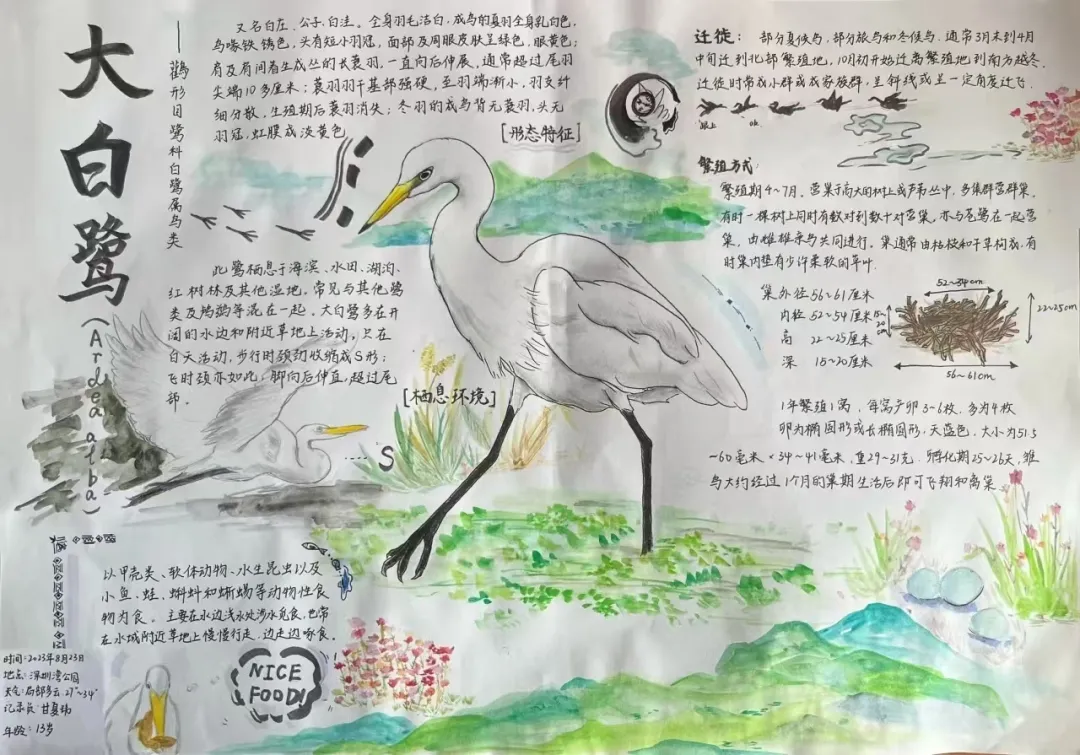 大白鹭
(Ardea alba)
——鹳形目鹭科白鹭属鸟类
又名白庄、公子、白洼。全身羽毛洁白,成鸟的夏羽全身乳白色,
鸟喙铁锈色,头有短小羽冠,面部及周眼皮肤呈绿色,眼黄色;
肩及肩间着生成丛的长蓑羽,一直向后伸展,通常超过尾羽
尖端10多厘米;蓑羽羽干基部强硬,至羽端渐小,羽支纤
细分散,生殖期后蓑羽消失;冬羽的成鸟背无蓑羽,头无
羽冠,虹膜成淡黄色
[形态特征]
此鹭栖息于海滨、水田、湖泊、
红树林及其他湿地,常见与其他鹭
类及鸬鹚等混在一起。大白鹭多在开
阔的水边和附近草地上活动,只在
白天活动,步行时颈劲收缩成S形;
飞时颈亦如此,脚向后伸直,超过尾
部。
[栖息环境]
S
以甲壳类、软体动物、水生昆虫以及
小鱼、蛙、蝌蚪和蜥蜴等动物性食
物为食。主要在水边浅水处涉水觅食,也常
在水域附近草地上慢慢行走,边走边啄食。
NICE
FOOD!
时间:2023年8月23日
地点:深圳湾公园
天气:局部多云 27°~34°
记录员:甘夏
年龄:13岁
迁徙:部分夏候鸟,部分旅鸟和冬候鸟,通常3月末到4月
中旬迁到北部繁殖地,10月初开始迁离繁殖地到南方越冬。
迁徙时常成小群或成家族群,呈斜线或呈一定角度迁飞。
繁殖方式:
繁殖期4~7月。营巢于高大的树上或芦苇丛中,多集群营群巢,
有时一棵树上同时有数对到数十对营巢,亦与苍鹭在一起营
巢,由雌雄亲鸟共同进行。巢通常由枯枝和干草构成,有
时巢内垫有少许柔软的草叶.
巢外径56~61厘米
内径 52~54厘米
高 22~25厘米
深 15~20厘米
52~54cm
15~20cm
22~25cm
56~61cm
1年繁殖1窝,每窝产卵3-6枚,多为4枚
卵为椭圆形或长椭圆形,天蓝色,大小为51.5
~60毫米×34~41毫米,重29~31克.孵化期25~26天,雏
鸟大约经过1个月的巢期生活后即可飞翔和离巢